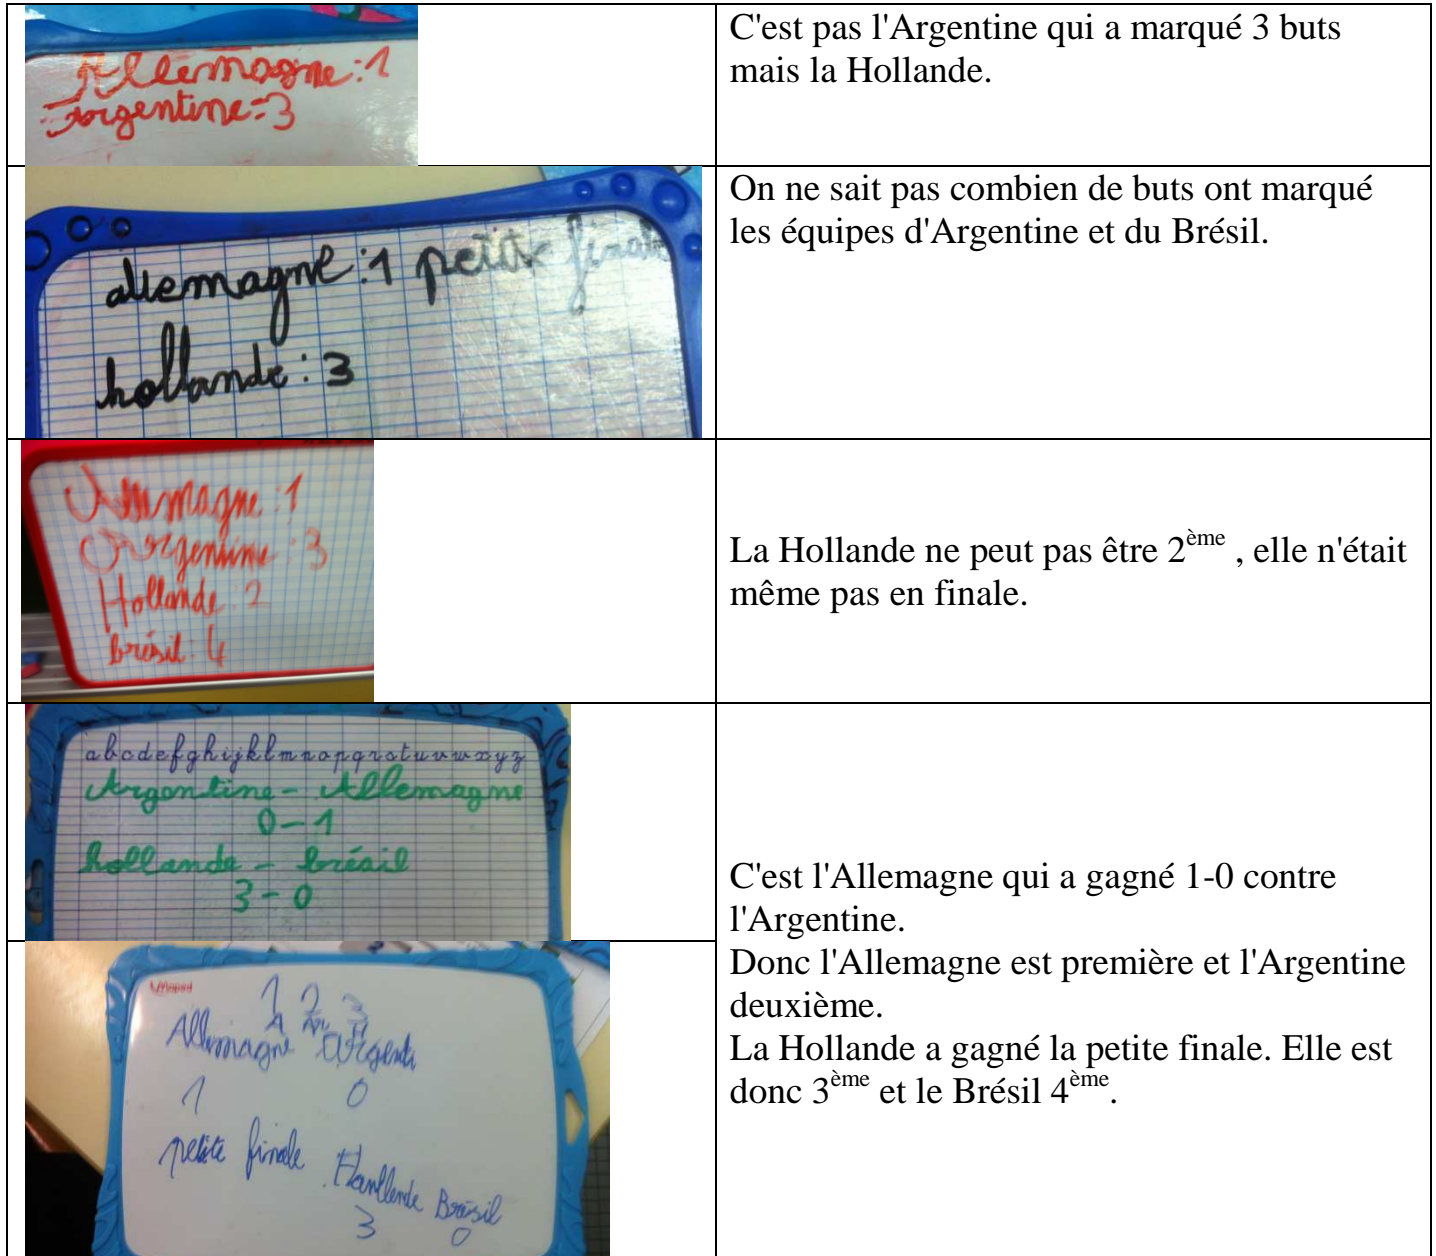 Allemagne:1
Argentine=3
C'est pas l'Argentine qui a marqué 3 buts
mais la Hollande.
allemagne:1 petite finale
hollande:3
On ne sait pas combien de buts ont marqué
les équipes d'Argentine et du Brésil.
Allemagne:1
Argentine:3
Hollande:2
brésil:4
La Hollande ne peut pas être 2ème , elle n'était
même pas en finale.
abcdefghijklmnopqrstuvwxyz
Argentine - Allemagne
0-1
hollande - brésil
3-0
1 2 3
A Ar H
Allemagne Argenti
1 0
petite finale Hanllende Brésil
3 0
C'est l'Allemagne qui a gagné 1-0 contre
l'Argentine.
Donc l'Allemagne est première et l'Argentine
deuxième.
La Hollande a gagné la petite finale. Elle est
donc 3ème et le Brésil 4ème.